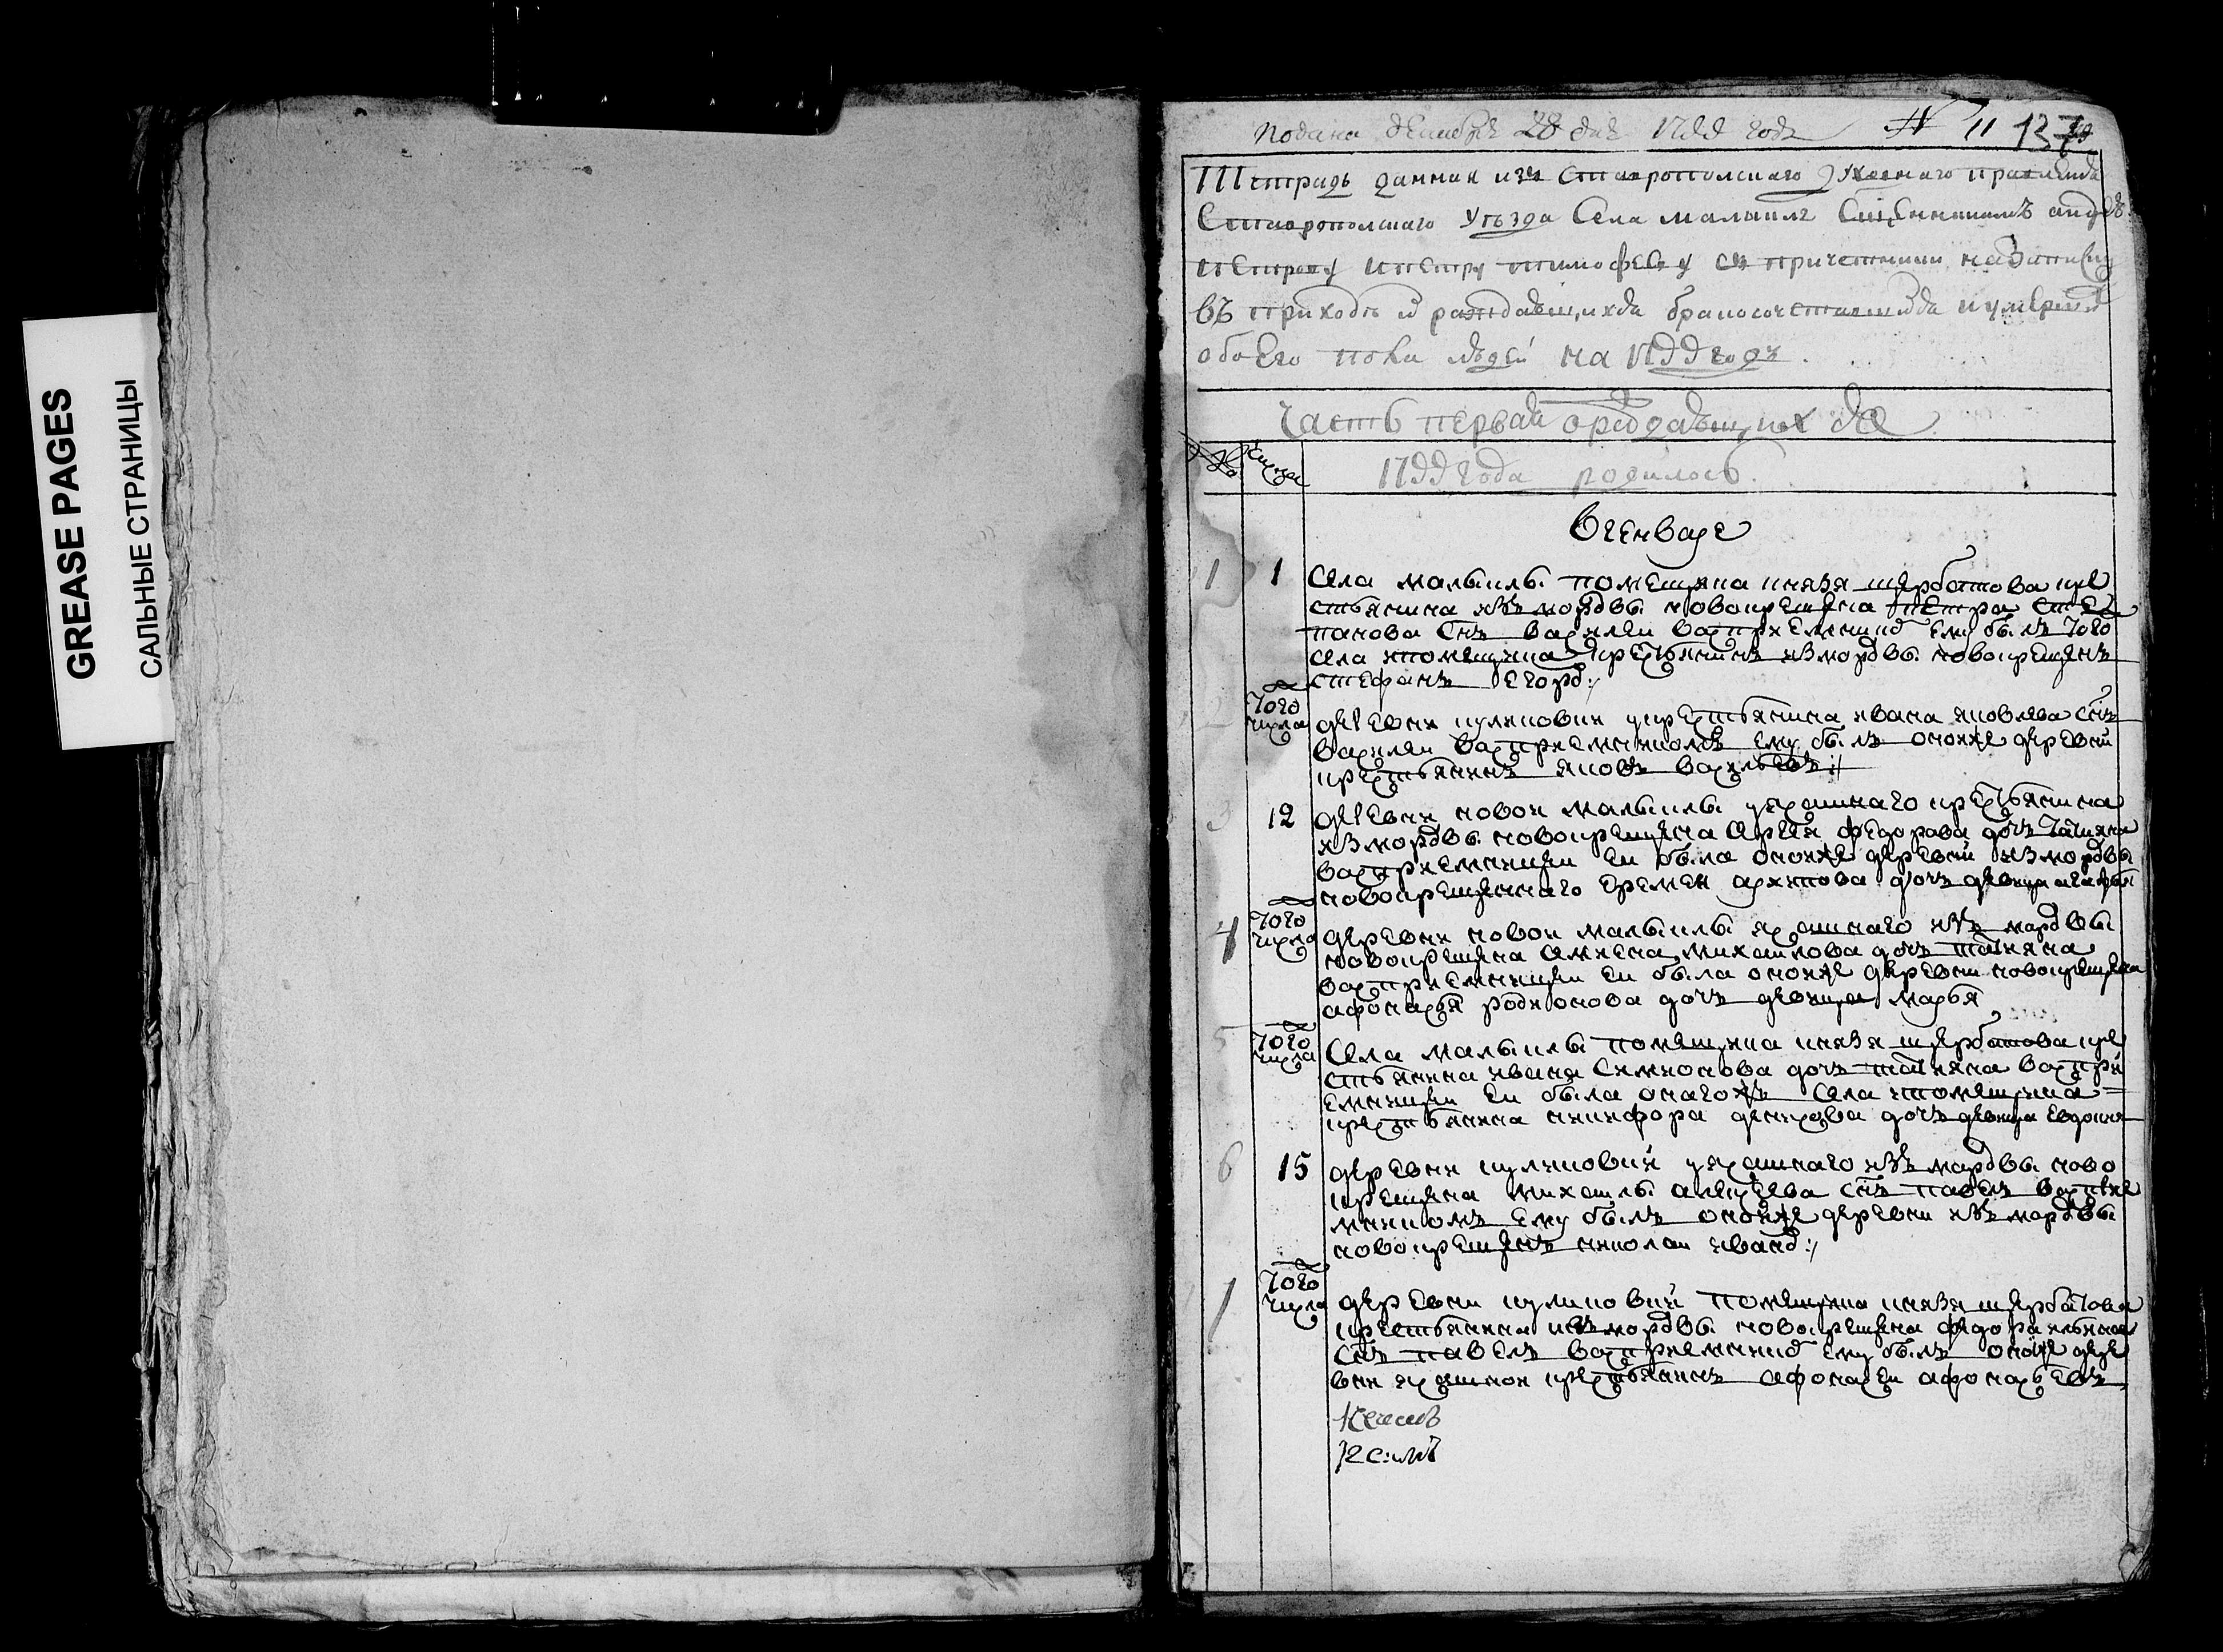 GREASE PAGES
САЛЬНЫЕ СТРАНИЦЫ
Подана декабря 28 дня 1799 года № 11 137
Тетрадь данная изъ Ставропольскаго Духовнаго правленія
Ставропольскаго уезда Села малыклы Священникомъ андрею
петрову и петру тимофееву съ причетники на записку
въ приходе ихъ раждающихся бракосочетающихся и умерших
обоего пола людей на 1799 годъ.
Часть первая о раждающихся
числа
1799 года родилось.
в генваре
1 1 Села малыклы помещика князя щербатова кре
стьянина изъ мордвы новокрещена петра сте
панова снъ василеи восприемникъ ему былъ того
села и помещика крестьянинъ из мордвы новокрещенъ
стефанъ егоровъ
2 того числа деревни куликовки крестьянина ивана яковлева снъ
василеи восприемникомъ ему былъ оной же деревни
крестьянинъ яковъ васильевъ
3 12 деревни новои малыклы ясашнаго крестьянина
из мордвы новокрещена Сергея федорова дочь татияна
восприемницеи еи была оной же деревни из мордвы
новокрещеннаго еремея архипова дочь девица агафья
4 того числа деревни новои малыклы ясашнаго изъ мордвы
новокрещена михаилова дочь татияна
восприемницеи еи была оной же деревни новокрещена
афонасья родионова дочь девица марья
5 того числа Села малыклы помещика князя щербатова кре
стьянина ивана Симионова дочь татияна воспри
емницеи еи была онаго жъ Села и помещика
крестьянина никифора денисова дочь девица евдокия
6 15 деревни куликовки ясашнаго изъ мордвы ново
крещена михаилы алексеева снъ павелъ восприе
мникомъ ему былъ оной же деревни изъ мордвы
новокрещенъ николаи ивановъ
7 того числа деревни куликовки помещика князя щербатова
крестьянина изъ мордвы новокрещена федора ильина
снъ павелъ восприемникъ ему былъ оной же дере
вни ясашнои крестьянинъ афонасеи афонасьевъ